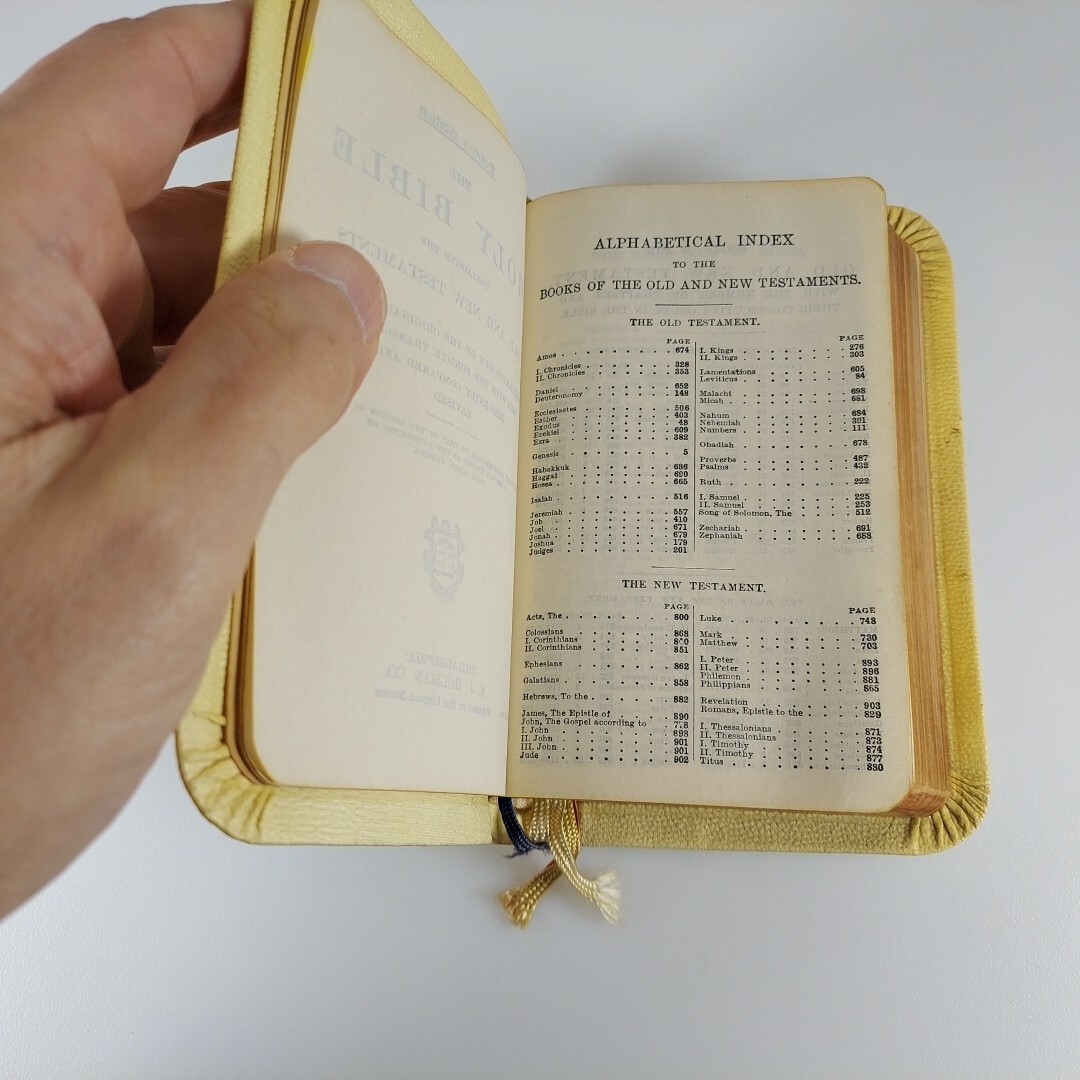 Holman Edition
THE
HOLY BIBLE
CONTAINING THE
AND NEW TESTAMENTS
OUT OF THE ORIGINAL
DILIGENTLY COMPARED AND
REVISED
PHILADELPHIA:
A. J. HOLMAN CO.
ALPHABETICAL INDEX
TO THE
BOOKS OF THE OLD AND NEW TESTAMENTS.
THE OLD TESTAMENT.
PAGE
Amos 674
I. Chronicles 328
II. Chronicles 353
Daniel 652
Deuteronomy 148
Ecclesiastes 506
Esther 403
Exodus 48
Ezekiel 609
Ezra 382
Genesis 5
Habakkuk 686
Haggai 690
Hosea 665
Isaiah 516
Jeremiah 557
Job 410
Joel 671
Jonah 679
Joshua 179
Judges 201
PAGE
I. Kings 276
II. Kings 303
Lamentations 605
Leviticus 84
Malachi 698
Micah 681
Nahum 684
Nehemiah 391
Numbers 111
Obadiah 678
Proverbs 487
Psalms 432
Ruth 222
I. Samuel 225
II. Samuel 253
Song of Solomon, The 512
Zechariah 691
Zephaniah 688
THE NEW TESTAMENT.
PAGE
Acts, The 800
Colossians 868
I. Corinthians
II. Corinthians 851
Ephesians 862
Galatians 858
Hebrews, To the 882
James, The Epistle of 890
John, The Gospel according to
I. John 898
II. John 901
III. John 901
Jude 902
PAGE
Luke 748
Mark 730
Matthew 703
I. Peter 893
II. Peter 896
Philemon 881
Philippians 865
Revelation 903
Romans, Epistle to the 829
I. Thessalonians 871
II. Thessalonians 873
I. Timothy 874
II. Timothy 877
Titus 880